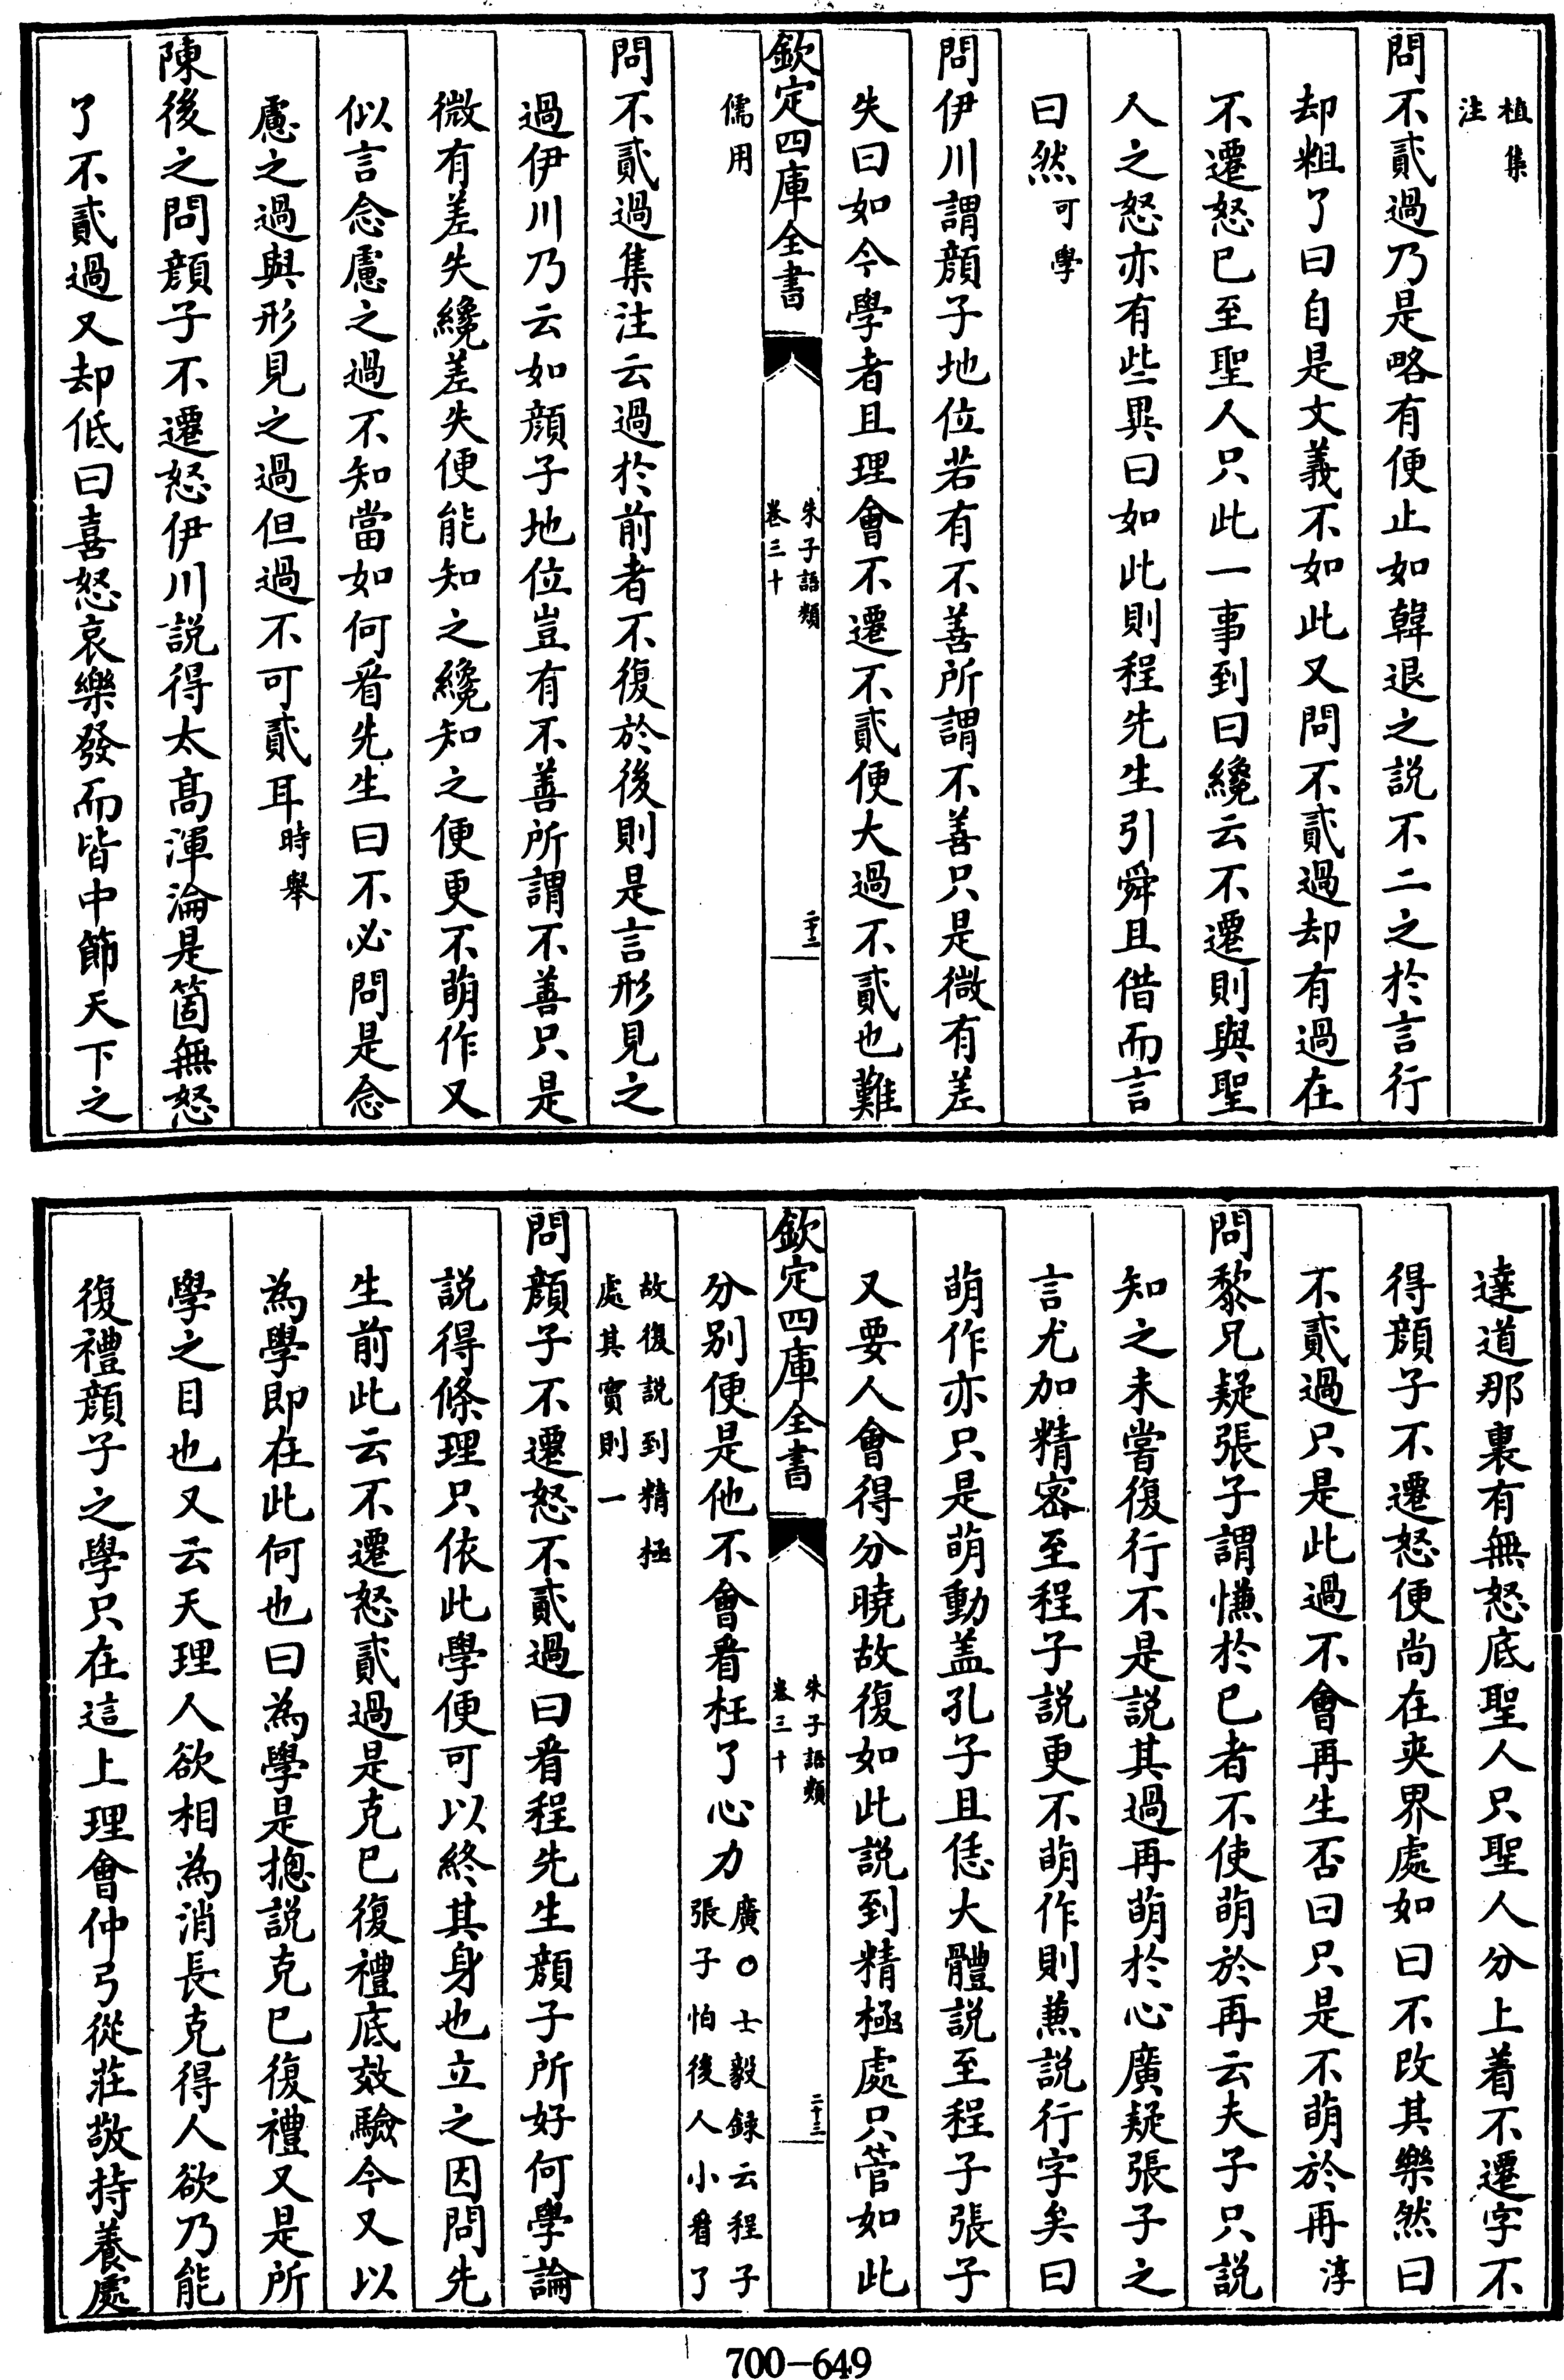 植集
注
問不貳過乃是略有便止如韓退之説不二之於言行
却粗了曰自是文義不如此又問不貳過却有過在
不遷怒已至聖人只此一事到曰纔云不遷則與聖
人之怒亦有些異曰如此則程先生引舜且借而言
曰然可學
問伊川謂顔子地位若有不善所謂不善只是微有差
失曰如今學者且理會不遷不貳便大過不貳也難
欽定四庫全書
朱子語類
卷三十
二十二
儒用
問不貳過集注云過於前者不復於後則是言形見之
過伊川乃云如顔子地位豈有不善所謂不善只是
微有差失纔差失便能知之纔知之便更不萌作又
似言念慮之過不知當如何看先生曰不必問是念
慮之過與形見之過但過不可貳耳時舉
陳後之問顔子不遷怒伊川説得太高渾淪是箇無怒
了不貳過又却低曰喜怒哀樂發而皆中節天下之
達道那裏有無怒底聖人只聖人分上着不遷字不
得顔子不遷怒便尚在夾界處如曰不改其樂然曰
不貳過只是此過不會再生否曰只是不萌於再淳
問黎兄疑張子謂慊於已者不使萌於再云夫子只説
知之未嘗復行不是説其過再萌於心廣疑張子之
言尤加精密至程子説更不萌作則兼説行字矣曰
萌作亦只是萌動盖孔子且恁大體説至程子張子
又要人會得分曉故復如此説到精極處只管如此
欽定四庫全書
朱子語類
卷三十
二十三
分别便是他不會看枉了心力廣○士毅録云程子
張子怕後人小看了
故復説到精極
處其實則一
問顔子不遷怒不貳過曰看程先生顔子所好何學論
説得條理只依此學便可以終其身也立之因問先
生前此云不遷怒貳過是克已復禮底效驗今又以
為學即在此何也曰為學是摠説克已復禮又是所
學之目也又云天理人欲相為消長克得人欲乃能
復禮顔子之學只在這上理會仲弓從莊敬持養處
700-649